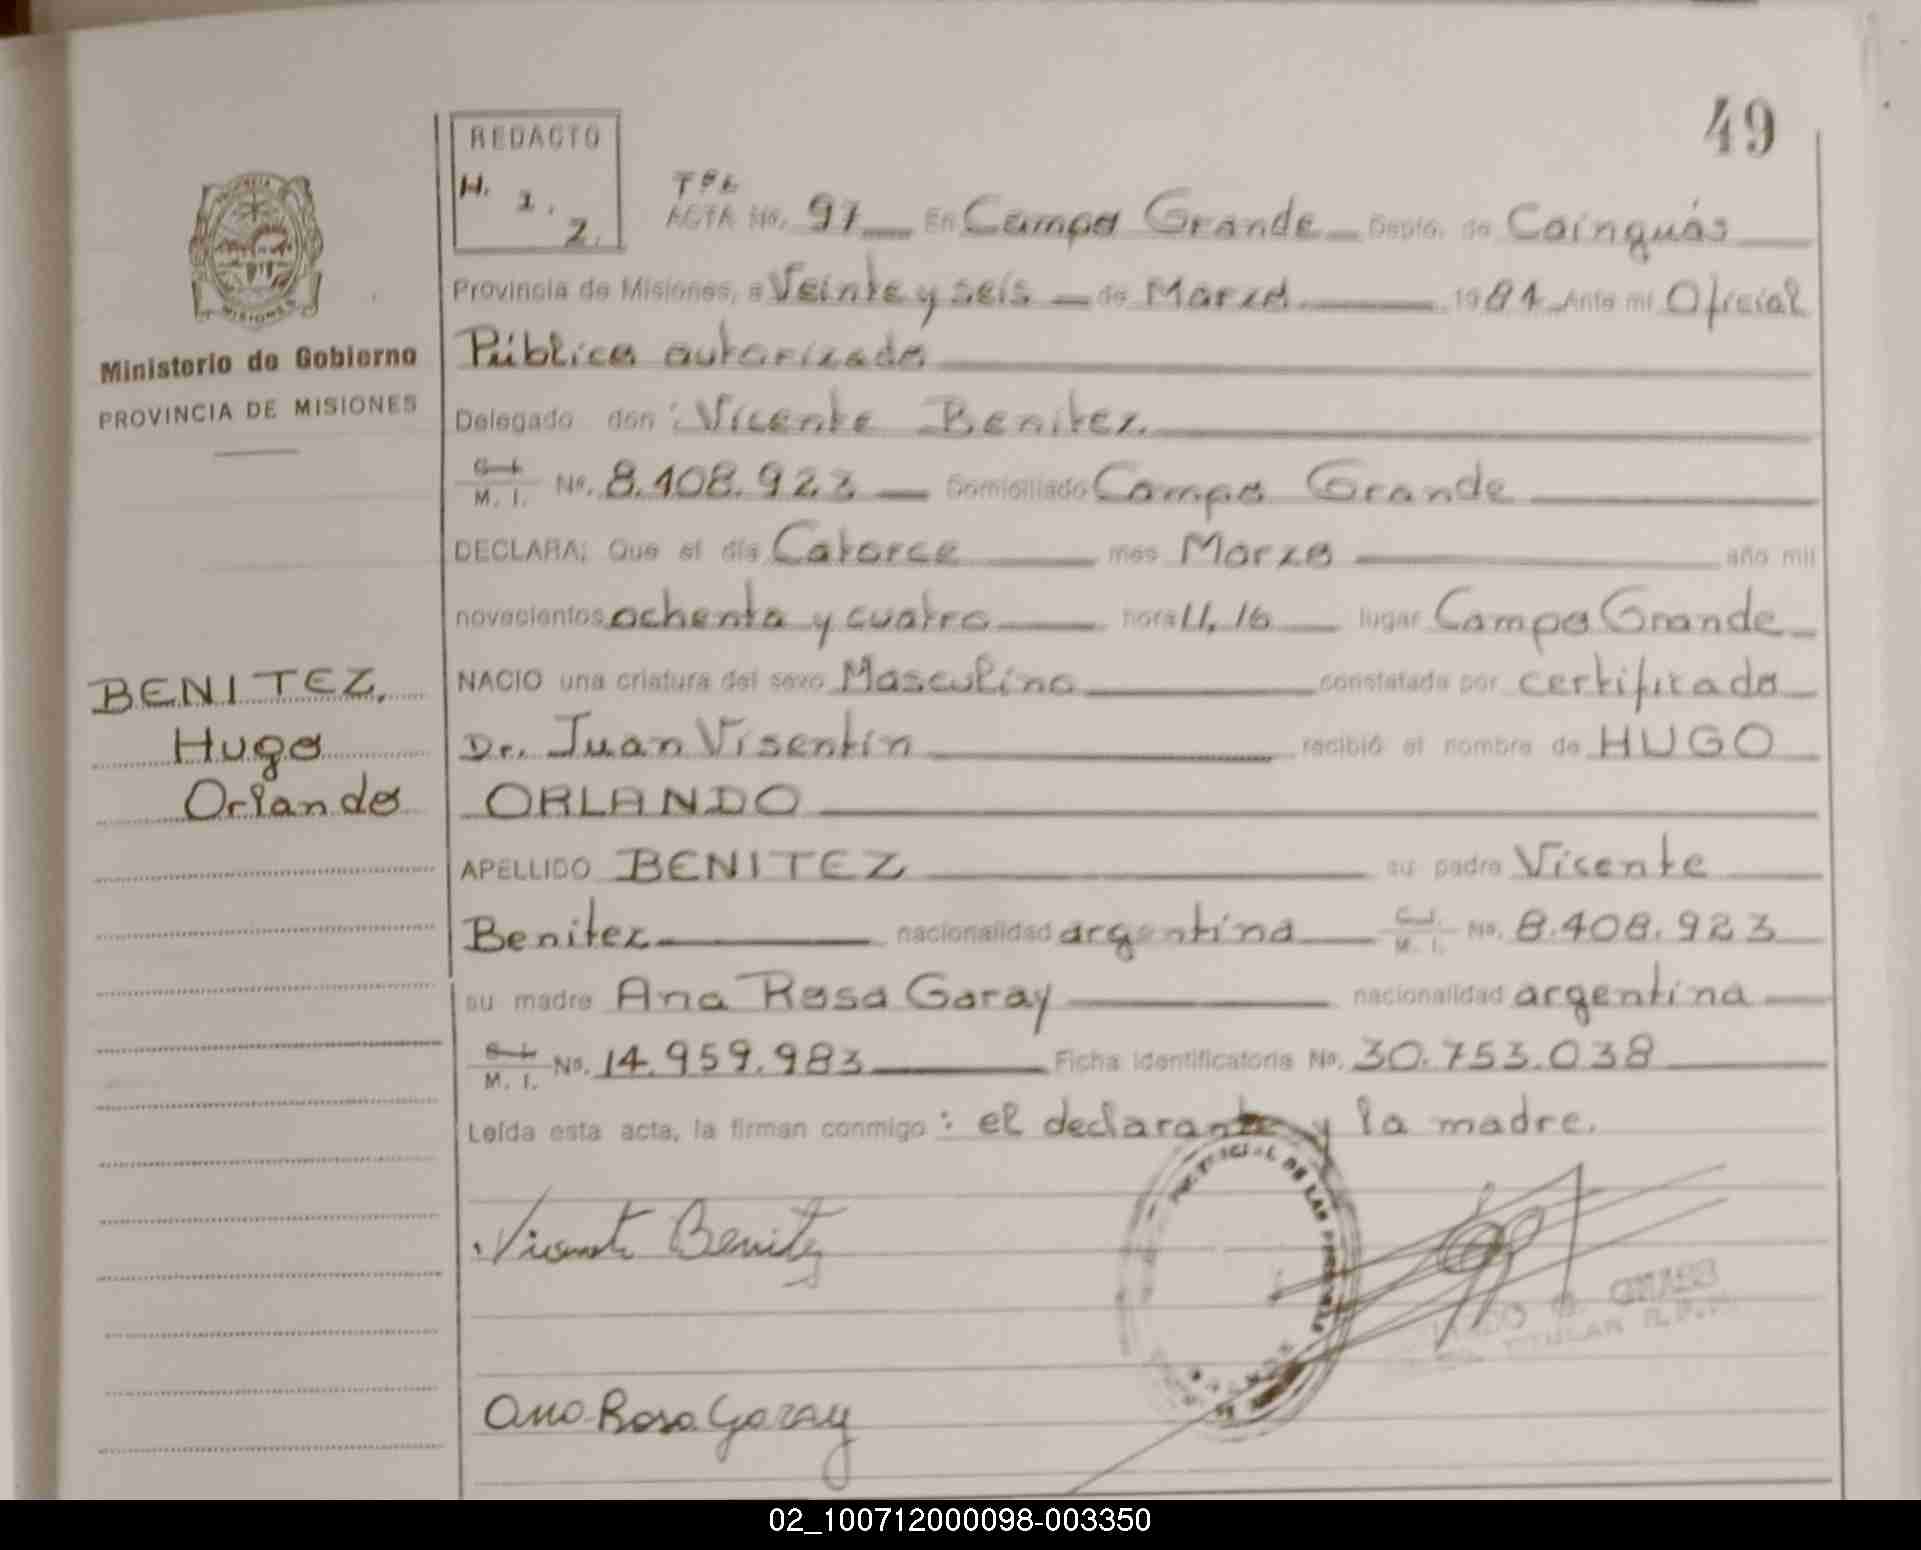 49
REDACTO
H. 1. 2.
Tº 1
ACTA No. 97 En Campo Grande Depto. de Cainguás
Provincia de Misiones, a Veinte y seis de Marzo 1984 Ante mi Oficial
Público autorizado
Ministerio de Gobierno
PROVINCIA DE MISIONES
Delegado don : Vicente Benitez
C. I. M. I. No. 8.408.923 Domiciliado Campo Grande
DECLARA; Que el día Catorce mes Marzo año mil
novecientos ochenta y cuatro hora 11,16 lugar Campo Grande
BENITEZ,
Hugo
Orlando
NACIO una criatura del sexo Masculino constatada por certificado
Dr. Juan Visentín recibió el nombre de HUGO
ORLANDO
APELLIDO BENITEZ su padre Vicente
Benitez nacionalidad argentina C. I. M. I. No. 8.408.923
su madre Ana Rosa Garay nacionalidad argentina
C. I. M. I. No. 14.959.983 Ficha Identificatoria No. 30.753.038
Leída esta acta, la firman conmigo : el declarante y la madre.
Vicente Benitez
Ana Rosa Garay
02_100712000098-003350